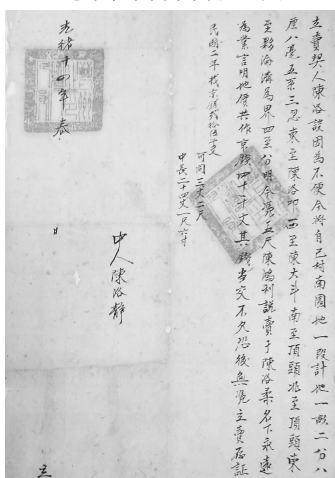 立賣契人陳洛談因為不便今將自己村南園地一段計地一畝二分八
厘八毫五系三忽東至陳洛印西至陳大斗南至頂頭北至頂頭東
至夥海溝為界四至分明今憑五尺陳鴻利說賣于陳洛柔名下永遠
為業言明地價共作京錢四十千文其錢當交不欠恐後無憑立賣存証
可闊三丈二尺
中長二十四丈一尺六寸
民國二年
光緒十四年 春
日
中人 陳洛靜
立